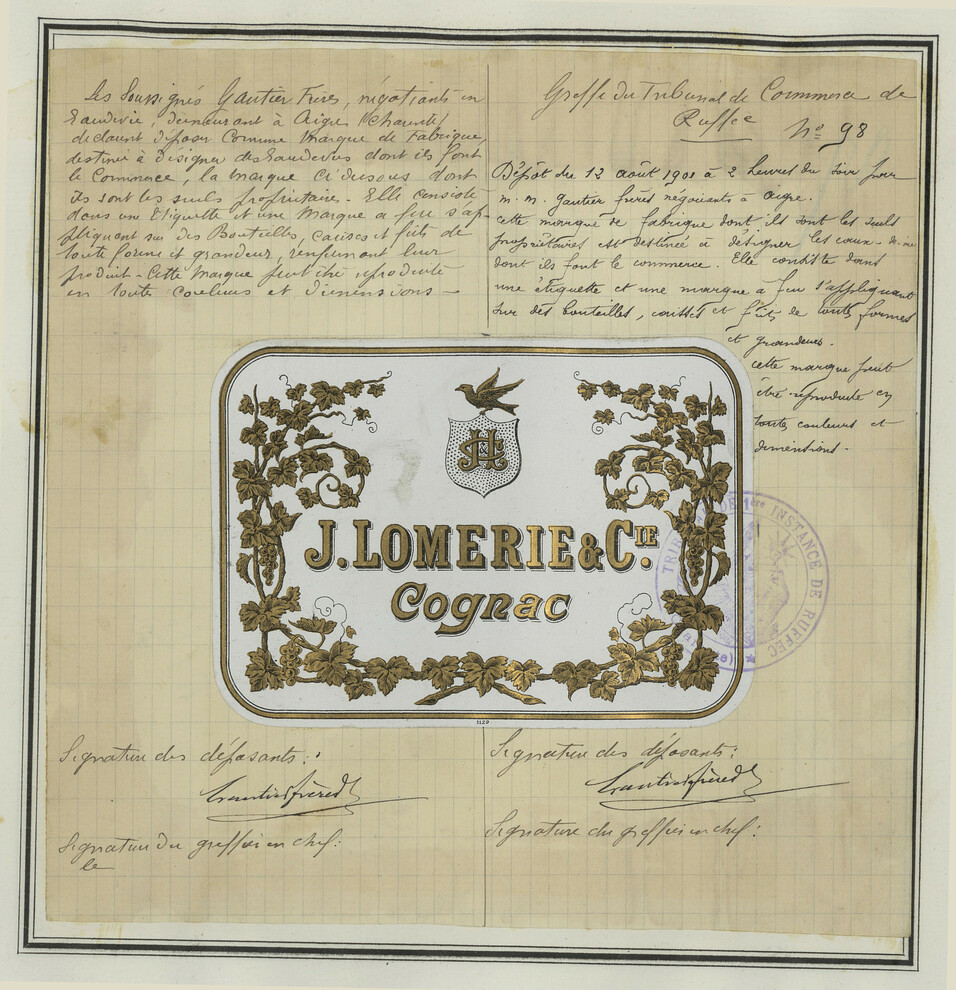 Les Soussignés Gautier Frères, négotiants en
Eaudevie, demeurant à Aigre (Charente)
déclarent déposer comme marque de Fabrique,
destinée à désigner des Eaudevies dont ils font
le Commerce, la marque ci-dessous dont
ils sont les seuls propriétaires. Elle consiste
dans une Etiquette et une Marque a feu s'ap-
pliquant sur des Bouteilles, caisses et futs de
toute forme et grandeur, renfermant leur
produit - Cette Marque peut être reproduite
en toutes couleurs et dimensions -
Greffe du Tribunal de Commerce de
Ruffec
No 98
Dépôt du 12 août 1901 à 2 heures du soir par
m.m. gautier frères négociants à aigre.
cette marque de fabrique dont ils sont les seuls
propriétaires est destinée à désigner les eaux-de-vie
dont ils font le commerce. Elle consiste dans
une étiquette et une marque à feu s'appliquant
sur des bouteilles, caisses et fûts de toutes formes
et grandeurs.
cette marque peut
être reproduite en
toutes couleurs et
dimensions.
J. LOMERIE & CIE.
Cognac
1129
DE 1ère INSTANCE DE RUFFEC
Signature des déposants :
Gautier frères
Signature du greffier en chef :
le
Signature des déposants :
Gautier frères
Signature du greffier en chef :